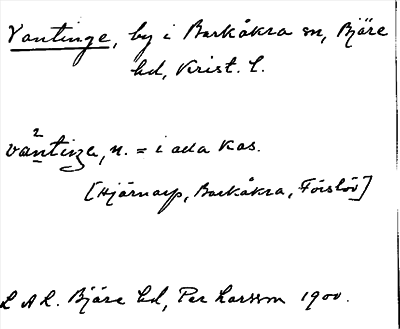 Vantinge, by i Barkåkra sn, Bjäre
hd, Krist. l.
vántinge, n. = i ada kas.
[Hjärnarp, Barkåkra, Förslöv]
L A L. Bjäre hd, Per Larsson 1900.